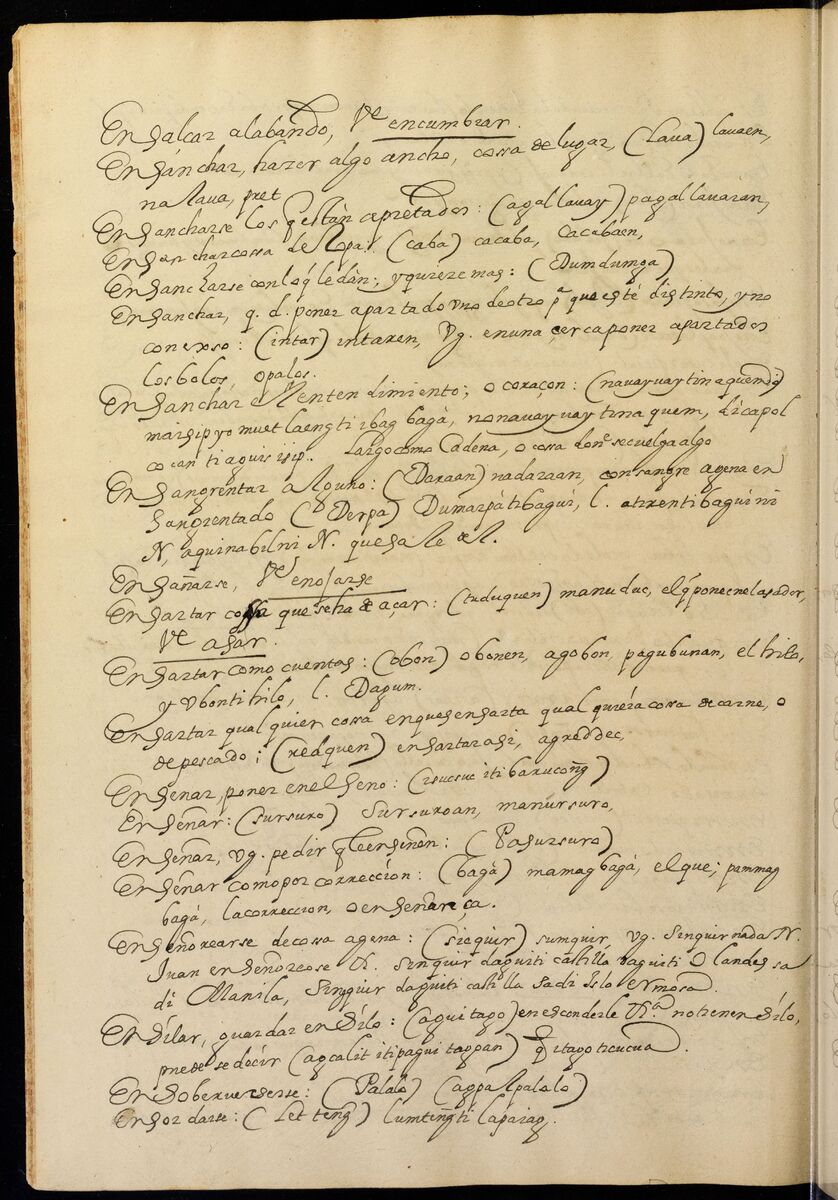 Ensalcar alabando, Vᵉ encumbrar.
Ensánchar, hazer algo ancho, cossa de lugar, (Laua) lauaen,
na laua, pret
Ensancharse los q̃ estàn apretados: (agallauay) pagallauaian,
Ensanchar cossa de Ropa: (caba) cacaba, cacabaen,
Ensancharse con lo q̃ le dàn; y quiere mas: (Dumdumga)
Ensanchar, q. d. poner apartado vno de otro pᵃ que estè distinto, y no
conexso: (intar) intaren, Vg. en una cerca poner apartados
los bolos, o palos.
Ensanchar el entendimiento; o coraçon: (nauayuaytinaquem di)
maisip yo muet laengti ibagbagà, nonauayuaytina quem, di capol
co can ti aguis isip. Largo como Cadena, o cosa donᵉ se cuelga algo
Ensangrentar a Alguno: (Daraan) nadaraan, con sangre agena en
sangrentado (Derpa) Dumarpàtibagui, l. atirentibaguini
N, aquinabilni N. que sale de l.
Ensañarse, Vᵉ enojarse
Ensartar cossa que se ha de açar: (tuduquen) manuduc, el q̃ pone en el asador,
Vᵉ asar.
Ensartar como cuentas: (obon) obonen, agobon, pagubunan, el hilo,
y Vbonti hilo, l. Dagum.
Ensartar qualquier cossa en que se ensarta qualquiera cossa de carne, o
de pescado; (redquen) ensartar asi, agreddec,
Ensenar, poner en el seno: (isucsuc iti barucong)
Enseñar: (sursuro) Sursuroan, manursuro,
Enseñar, Vg. pedir q̃ le enseñen: (Pasursuro)
Enseñar como por correccion: (bagà) mamagbagà, el que; pammag
bagà, la correccion, o enseñança.
Enseñorearse de cossa agena: (sicquir) sumquir, Vg. Sinquir nada N.
Juan enseñoreose &. Sinquir daguiti castilla daguiti Olandes sa
di Manila, Sinquir daguiti castilla sadi Islo ermosa.
Ensilar, guardar en Silo: (aguitapo) en esconderle &ᵃ. no tienen Silo,
puedese decir (agcalit iti pagui tappan) q̃ itapo ticucua.
Ensoberuecerse: (Palalo) (agpalpalalo)
Ensordarse: (Letteng) lumtengti lapaiag.